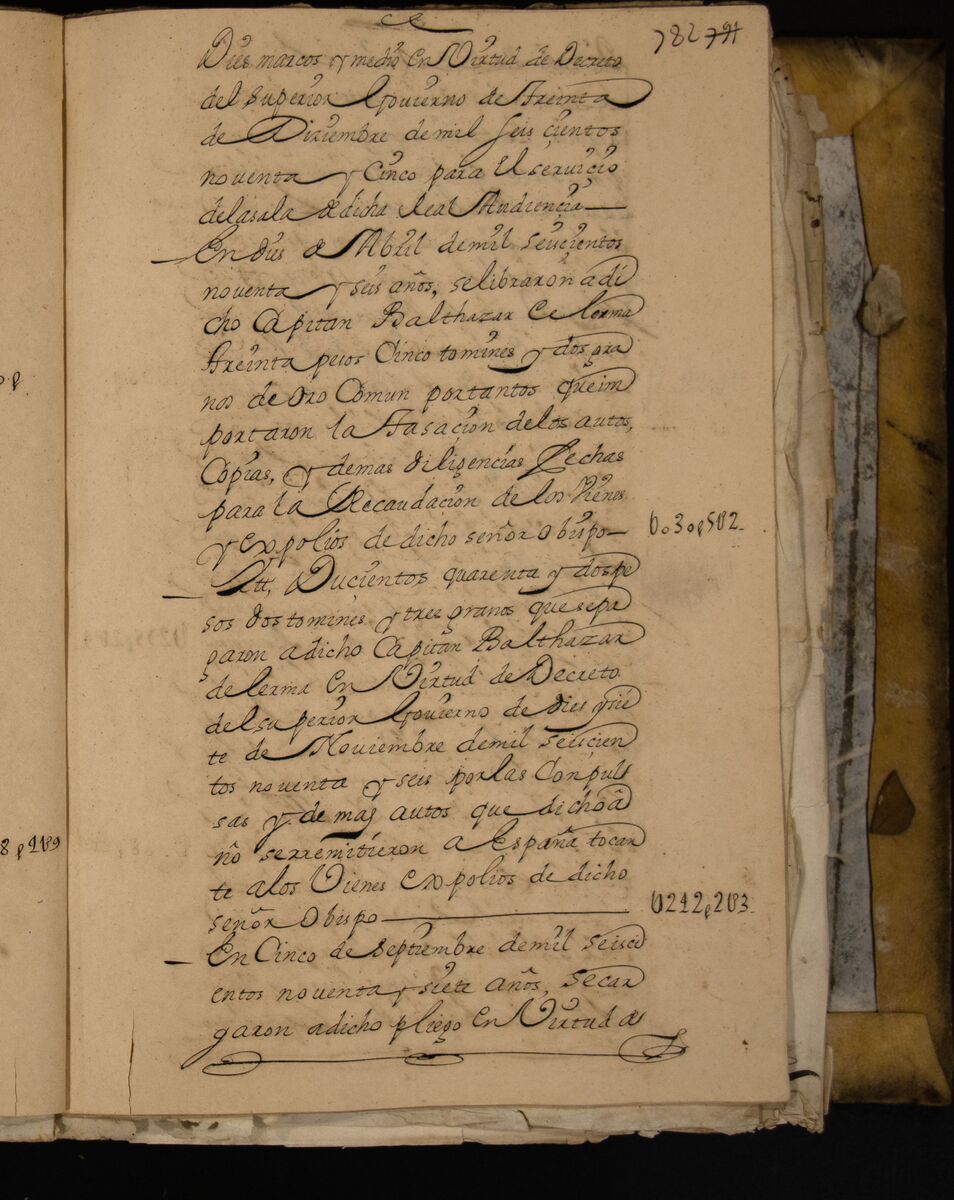 782 791
Dies marcos y medio En Virtud de Decreto
del Superior Govierno de treinta
de Diziembre demil seis cientos
noventa y Cinco para El servicio
delasala de dicha Real Audiencia
En dies de Abril demil seiscientos
noventa y seis años, selibraron a di
cho Capitan Balthazar de lerma
treinta pesos Cinco tomines y dos gra
nos de oro Comun portantos queim
portaron la tasacion delos autos,
Copias, y demas diligencias fechas
para la Recaudacion de los Vienes
y expolios de dicho señor obispo
Ett, Ducientos quarenta y dospe
sos dos tomines y tres granos quesepa
garon a dicho Capitan Balthazar
de lerma En Virtud de Decreto
del superior Govierno de dies ysie
te de Noviembre demil seiscien
tos noventa y seis porlas Conpul
sas y demas autos que dicho a
ño serremitieron a España tocan
te alos Vienes expolios de dicho
señor obispo
En Cinco de Septiembre demil seisci
entos noventa y siete años, secar
garon adicho pliego En Virtud de
U030p5U2
U242p2U3
8p2U9